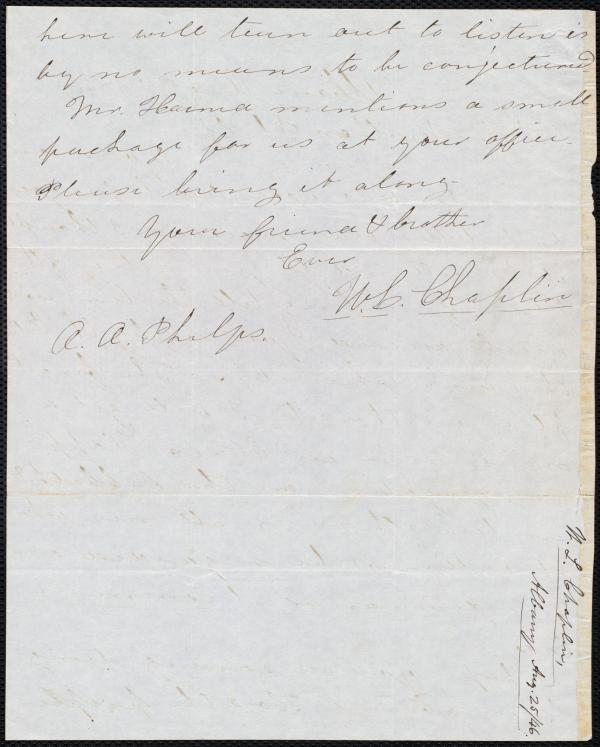 here will turn out to listen is
by no means to be conjectured
Mr. Harned mentions a small
package for us at your office.
Please bring it along.
Your friend & brother
Ever
W. L. Chaplin
A. A. Phelps.
W. L. Chaplin,
Albany Aug. 25/46.